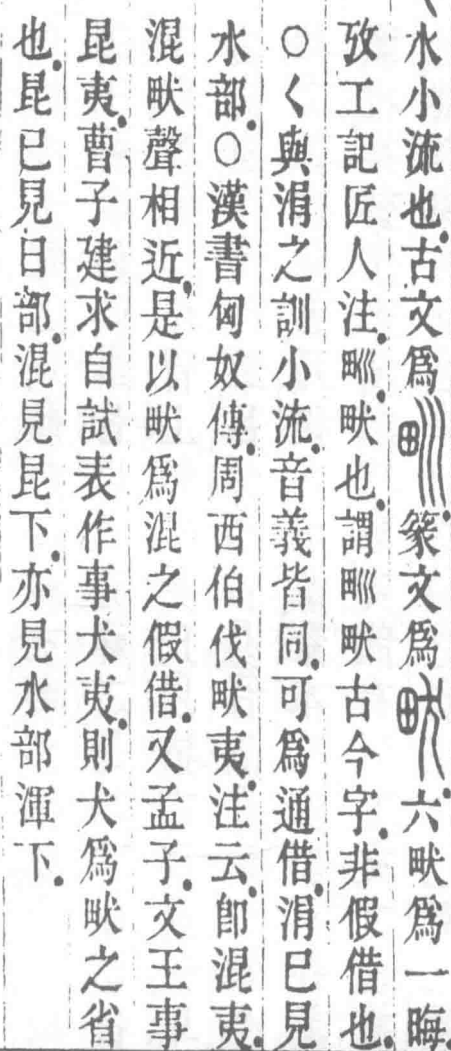 水小流也。古文爲𤰕。篆文爲畎。六畎爲一畮。
攷工記匠人注。甽畎也。謂甽畎古今字。非假借也。
○𡿨與涓之訓小流。音義皆同。可爲通借。涓已見
水部。○漢書匈奴傳。周西伯伐畎夷。注云。卽混夷。
混畎聲相近。是以畎爲混之假借。又孟子。文王事
昆夷。曹子建求自試表作事犬夷。則犬爲畎之省
也。昆已見日部。混見昆下。亦見水部渾下。